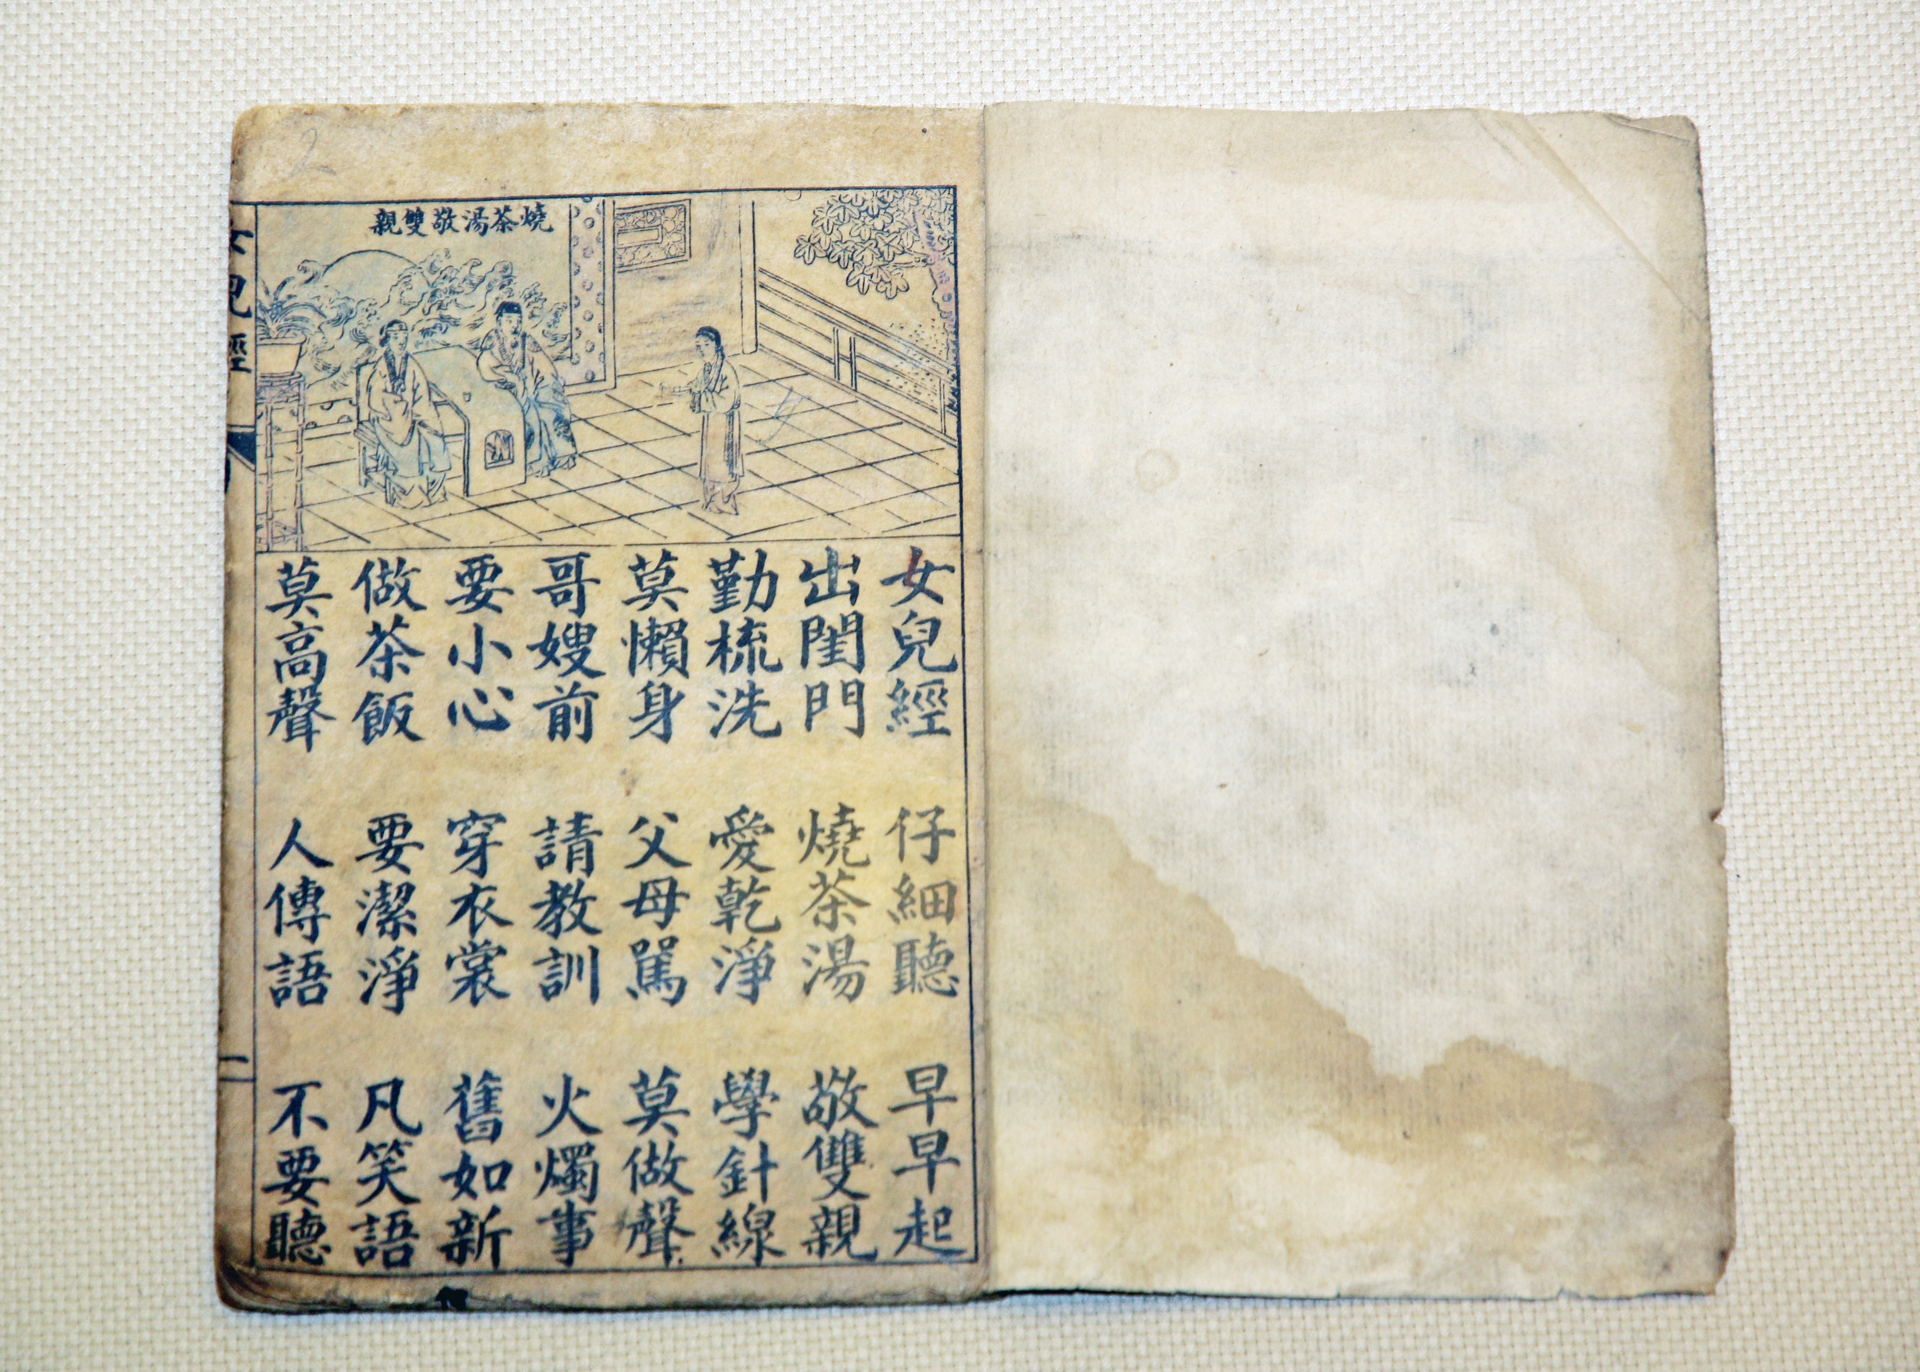 燒茶湯敬雙親
女兒經 仔細聽 早早起
出閨門 燒茶湯 敬雙親
勤梳洗 愛乾淨 學針線
莫懶身 父母罵 莫做聲
哥嫂前 請教訓 火燭事
要小心 穿衣裳 舊如新
做茶飯 要潔淨 凡笑語
莫高聲 人傳語 不要聽
女兒經
二
2